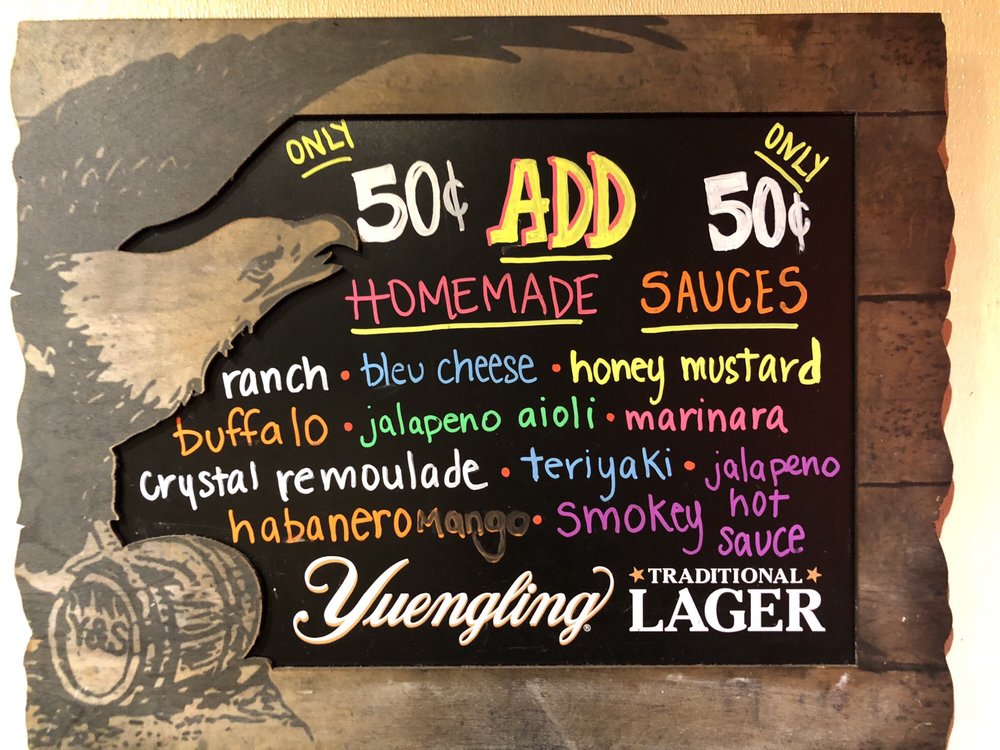 ONLY ONLY
50¢ ADD 50¢
HOMEMADE SAUCES
ranch • bleu cheese • honey mustard
buffalo • jalapeno aioli • marinara
crystal remoulade • teriyaki • jalapeno
habanero mango • smokey hot
sauce
Yuengling® TRADITIONAL
LAGER
Y&S